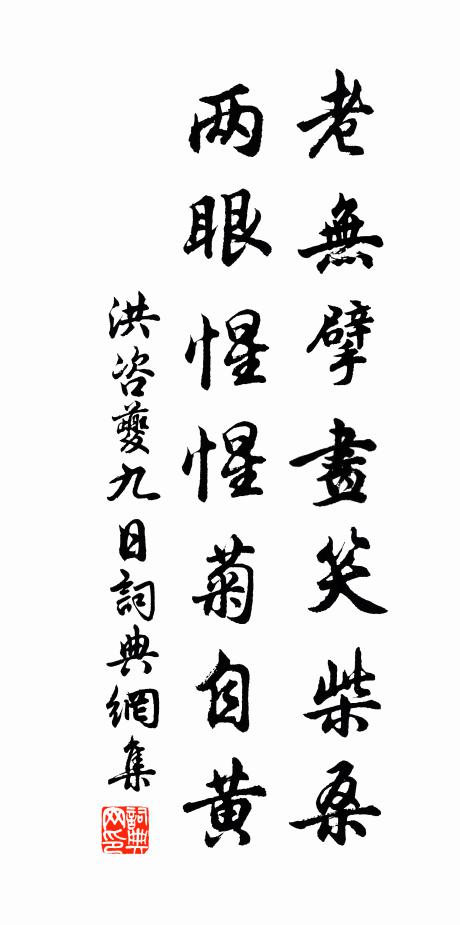 老無擘畫笑柴桑
两眼惺惺菊自黄
洪咨夔九日詞典網集
詞典网印